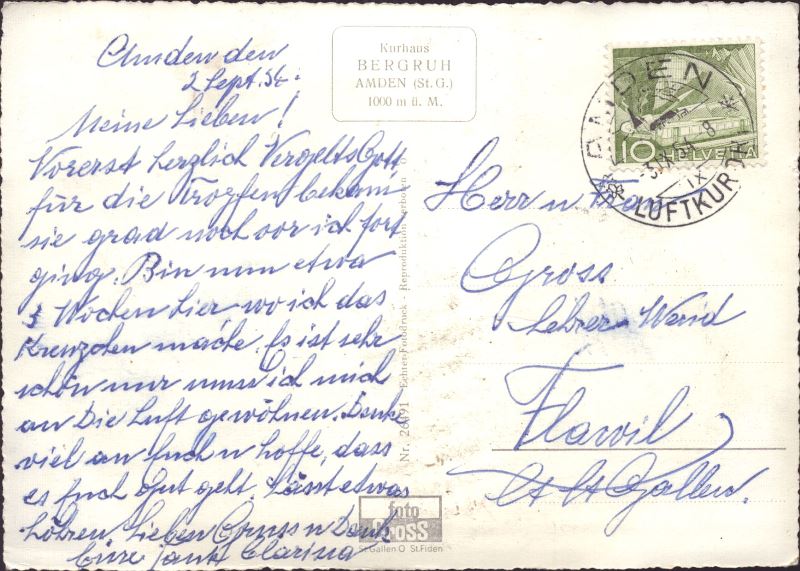 Amden den
2 Sept. 54.
Meine Lieben!
Vorerst herzlich Vergelts Gott
für die Tropfen bekam
sie grad noch vor ich fort
ging. Bin nun etwa
3 Wochen hier wo ich das
Kreuzchen mache. Es ist sehr
schön nur muss ich mich
an Die Luft gewöhnen. Denke
viel an Euch u hoffe, dass
es Euch Gut geht. Lässt etwas
hören. Lieben Gruss u Dank
Eure Clarissa
Kurhaus
BERGRUH
AMDEN (St. G.)
1000 m ü. M.
Nr. 26091 - Echter Fotodruck - Reproduktion verboten
foto
GROSS
St. Gallen O St. Fiden
10
HELVETIA
AMDEN
IX 54 - 8
LUFTKURORT
Herrn u Frau
Gross
Lehrer Weid
Flawil
Kt St Gallen.